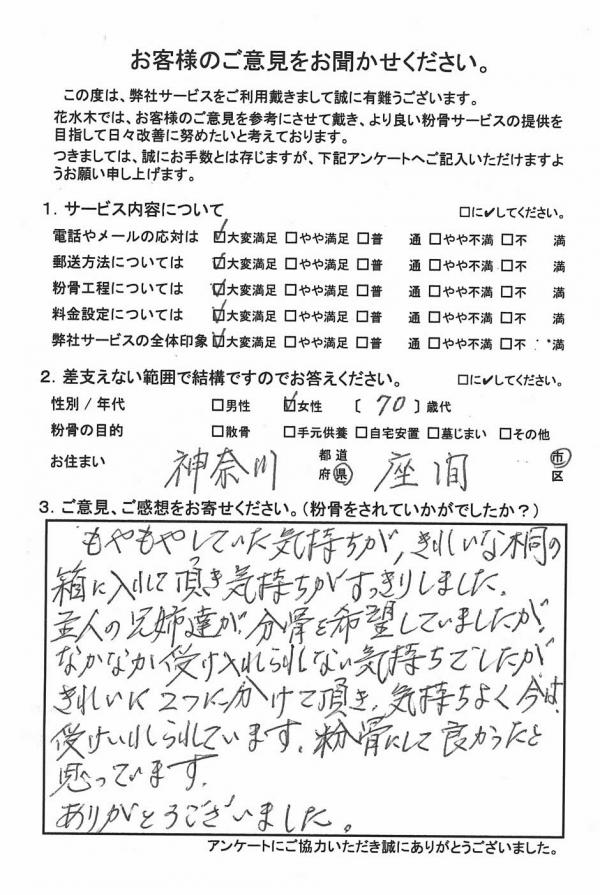 お客様のご意見をお聞かせください。
この度は、弊社サービスをご利用戴きまして誠に有難うございます。
花水木では、お客様のご意見を参考にさせて戴き、より良い粉骨サービスの提供を
目指して日々改善に努めたいと考えております。
つきましては、誠にお手数とは存じますが、下記アンケートへご記入いただけますよ
うお願い申し上げます。
1．サービス内容について □に✔してください。
電話やメールの応対は ☑大変満足 □やや満足 □普 通 □やや不満 □不 満
郵送方法については ☑大変満足 □やや満足 □普 通 □やや不満 □不 満
粉骨工程については ☑大変満足 □やや満足 □普 通 □やや不満 □不 満
料金設定については ☑大変満足 □やや満足 □普 通 □やや不満 □不 満
弊社サービスの全体印象 ☑大変満足 □やや満足 □普 通 □やや不満 □不 満
2．差支えない範囲で結構ですのでお答えください。 □に✔してください。
性別／年代 □男性 ☑女性 〔 70 〕歳代
粉骨の目的 □散骨 □手元供養 □自宅安置 □墓じまい □その他
お住まい 神奈川 都道府県 座間 市区
3．ご意見、ご感想をお寄せください。（粉骨をされていかがでしたか？）
もやもやしていた気持ちが、きれいな桐の
箱に入れて頂き気持ちがすっきりしました。
主人の兄姉達が、分骨を希望していましたが、
なかなか受け入れられない気持ちでしたが
きれいに2つに分けて頂き、気持ちよく今は、
受けいれられています。粉骨にして良かったと
思っています。
ありがとうございました。
アンケートにご協力いただき誠にありがとうございました。